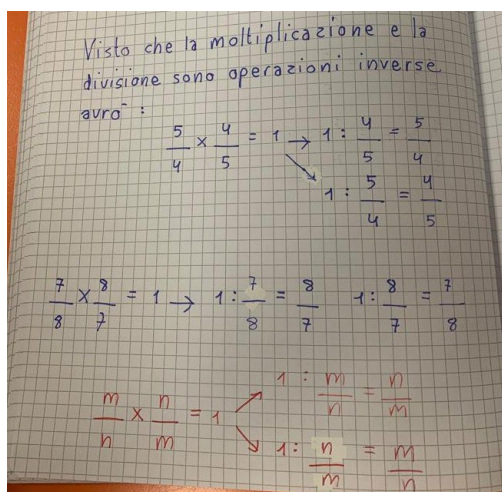 Visto che la moltiplicazione e la
divisione sono operazioni inverse
avrò :
5/4 x 4/5 = 1 → 1 : 4/5 = 5/4
↘ 1 : 5/4 = 4/5
7/8 x 8/7 = 1 → 1 : 7/8 = 8/7 1 : 8/7 = 7/8
↗ 1 : m/n = n/m
m/n x n/m = 1
↘ 1 : n/m = m/n